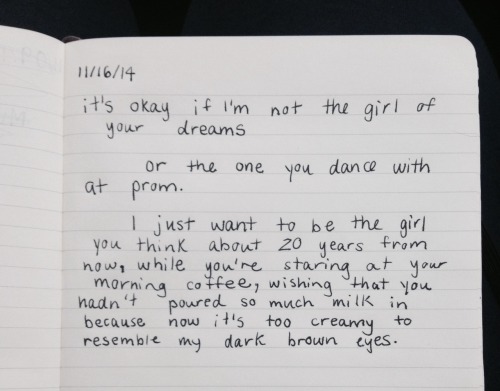 11/16/14
it's okay if I'm not the girl of
your dreams
or the one you dance with
at prom.
I just want to be the girl
you think about 20 years from
now, while you're staring at your
morning coffee, wishing that you
hadn't poured so much milk in
because now it's too creamy to
resemble my dark brown eyes.